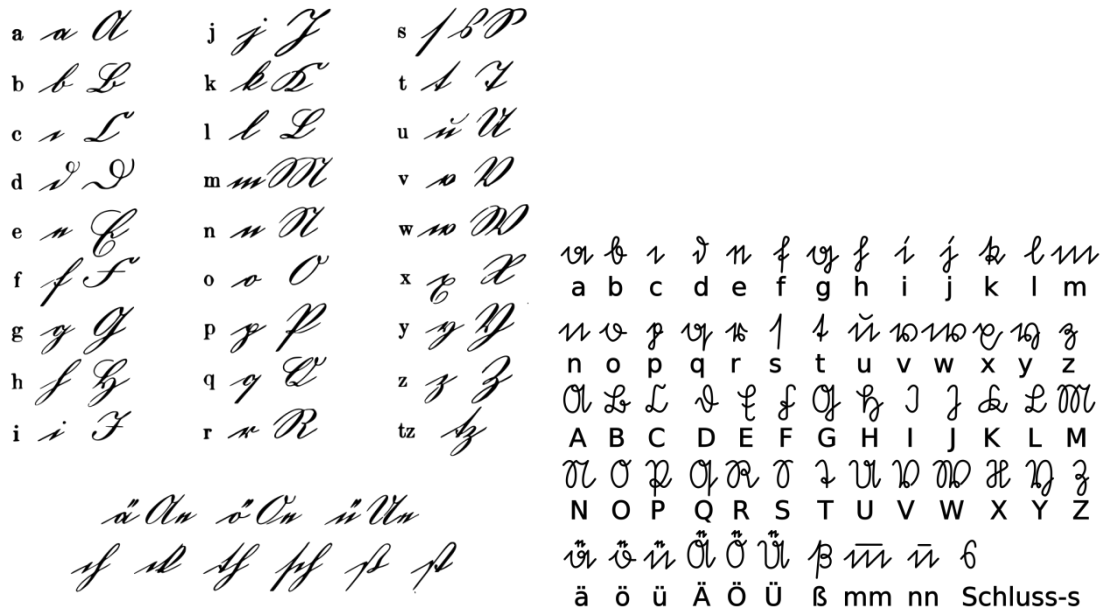 a a A
b b B
c c C
d d D
e e E
f f F
g g G
h h H
i i I
j j J
k k K
l l L
m m M
n n N
o o O
p p P
q q Q
r r R
s ſ s S
t t T
u u U
v v V
w w W
x x X
y y Y
z z Z
tz tz
ä Ae ö Oe ü Ue
ch ck th ſch ſt ß
a b c d e f g h i j k l m
a b c d e f g h i j k l m
n o p q r ſ t u v w x y z
n o p q r s t u v w x y z
A B C D E F G H I J K L M
A B C D E F G H I J K L M
N O P Q R S T U V W X Y Z
N O P Q R S T U V W X Y Z
ä ö ü Ä Ö Ü ß m̅ n̅ s
ä ö ü Ä Ö Ü ß mm nn Schluss-s